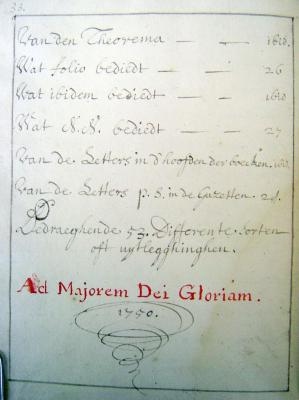 33.
Van den Theorema — — ibid.
Wat folio bediedt — — 26
Wat ibidem bediedt — — ibid
Wat N.N. bediedt — — 27
Van de Letters in d'hoofden der boecken. ibid.
Van de Letters p.s. in de Gazetten. 28.
Bedraeghende 53. Differente sorten
oft uytlegghinghen.
Ad Majorem Dei Gloriam.
1750.